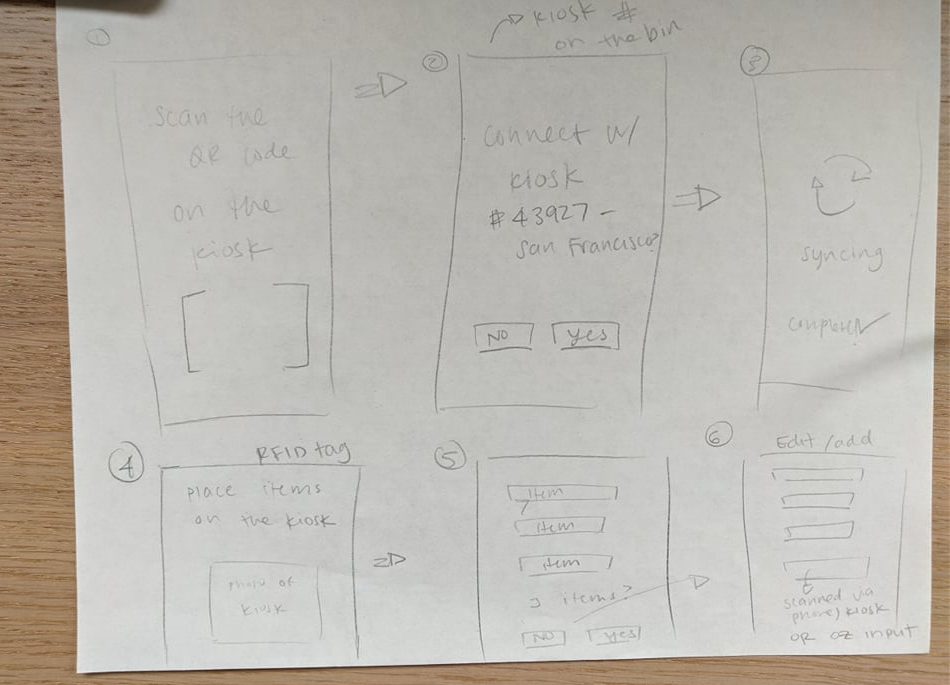 1
Scan the
QR code
on the
kiosk
kiosk #
on the bin
2
connect w/
kiosk
#43927 -
San Francisco?
NO
Yes
3
syncing
complete
4
RFID tag
Place items
on the kiosk
Photo of
kiosk
5
item
item
item
3 items?
NO
Yes
6
Edit/add
scanned via
phone/kiosk
OR OZ input